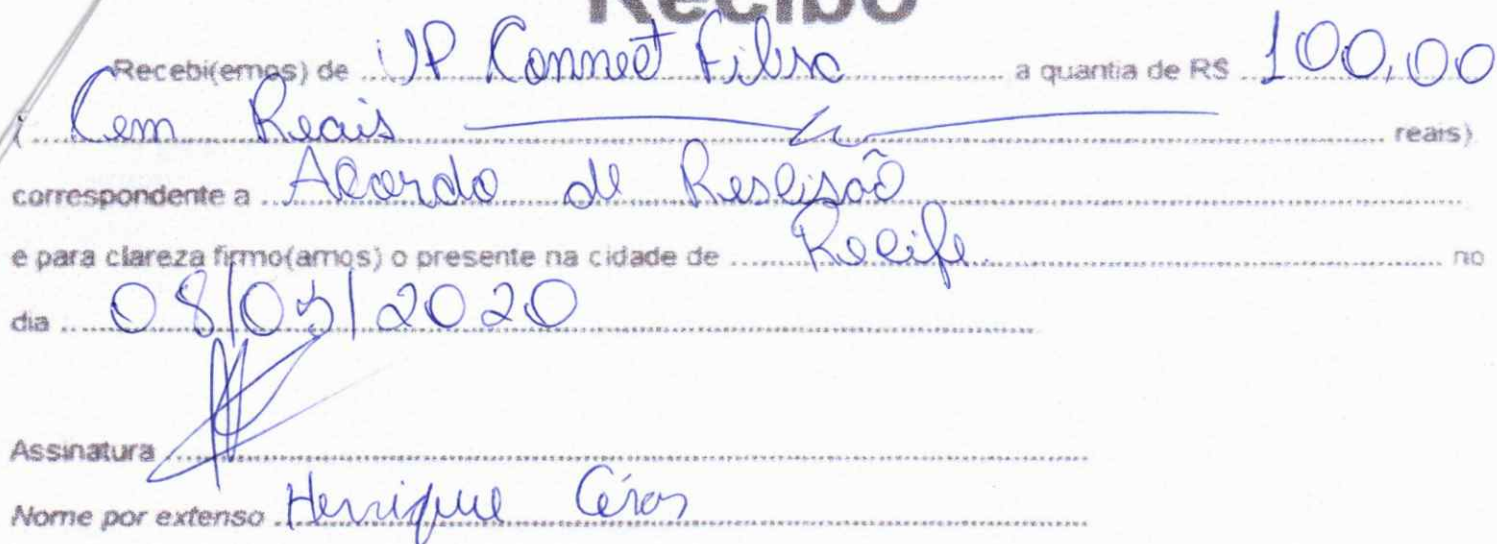 Recibo
Recebi(emos) de UP Connect Fibra a quantia de R$ 100,00
( Cem Reais reais)
correspondente a Acordo de Rescisão
e para clareza firmo(amos) o presente na cidade de Recife no
dia 08/05/2020
Assinatura
Nome por extenso Henrique